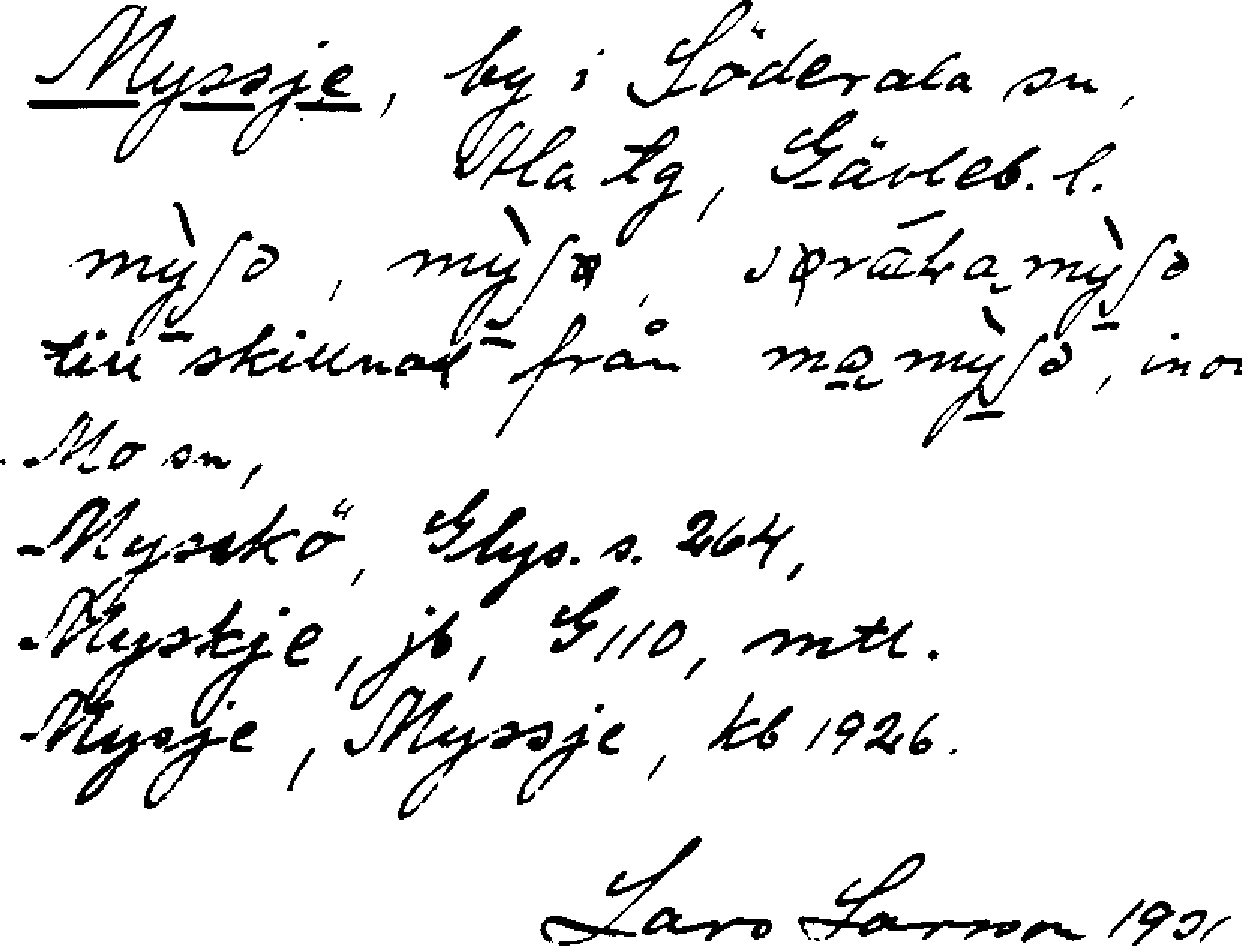 Myssje, by i Söderala sn,
Ala tg, Gävleb. l.
mỳʃə, mỳʃə,
till skillnad från
Mo sn,
Mysskö, Glys. s. 264,
Myskje, jb, G 110, mtl.
Mysje, Myssje, kb 1926.
Lars Larsson